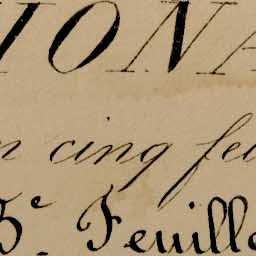 IONA
n cinq feu
5e. Feuille